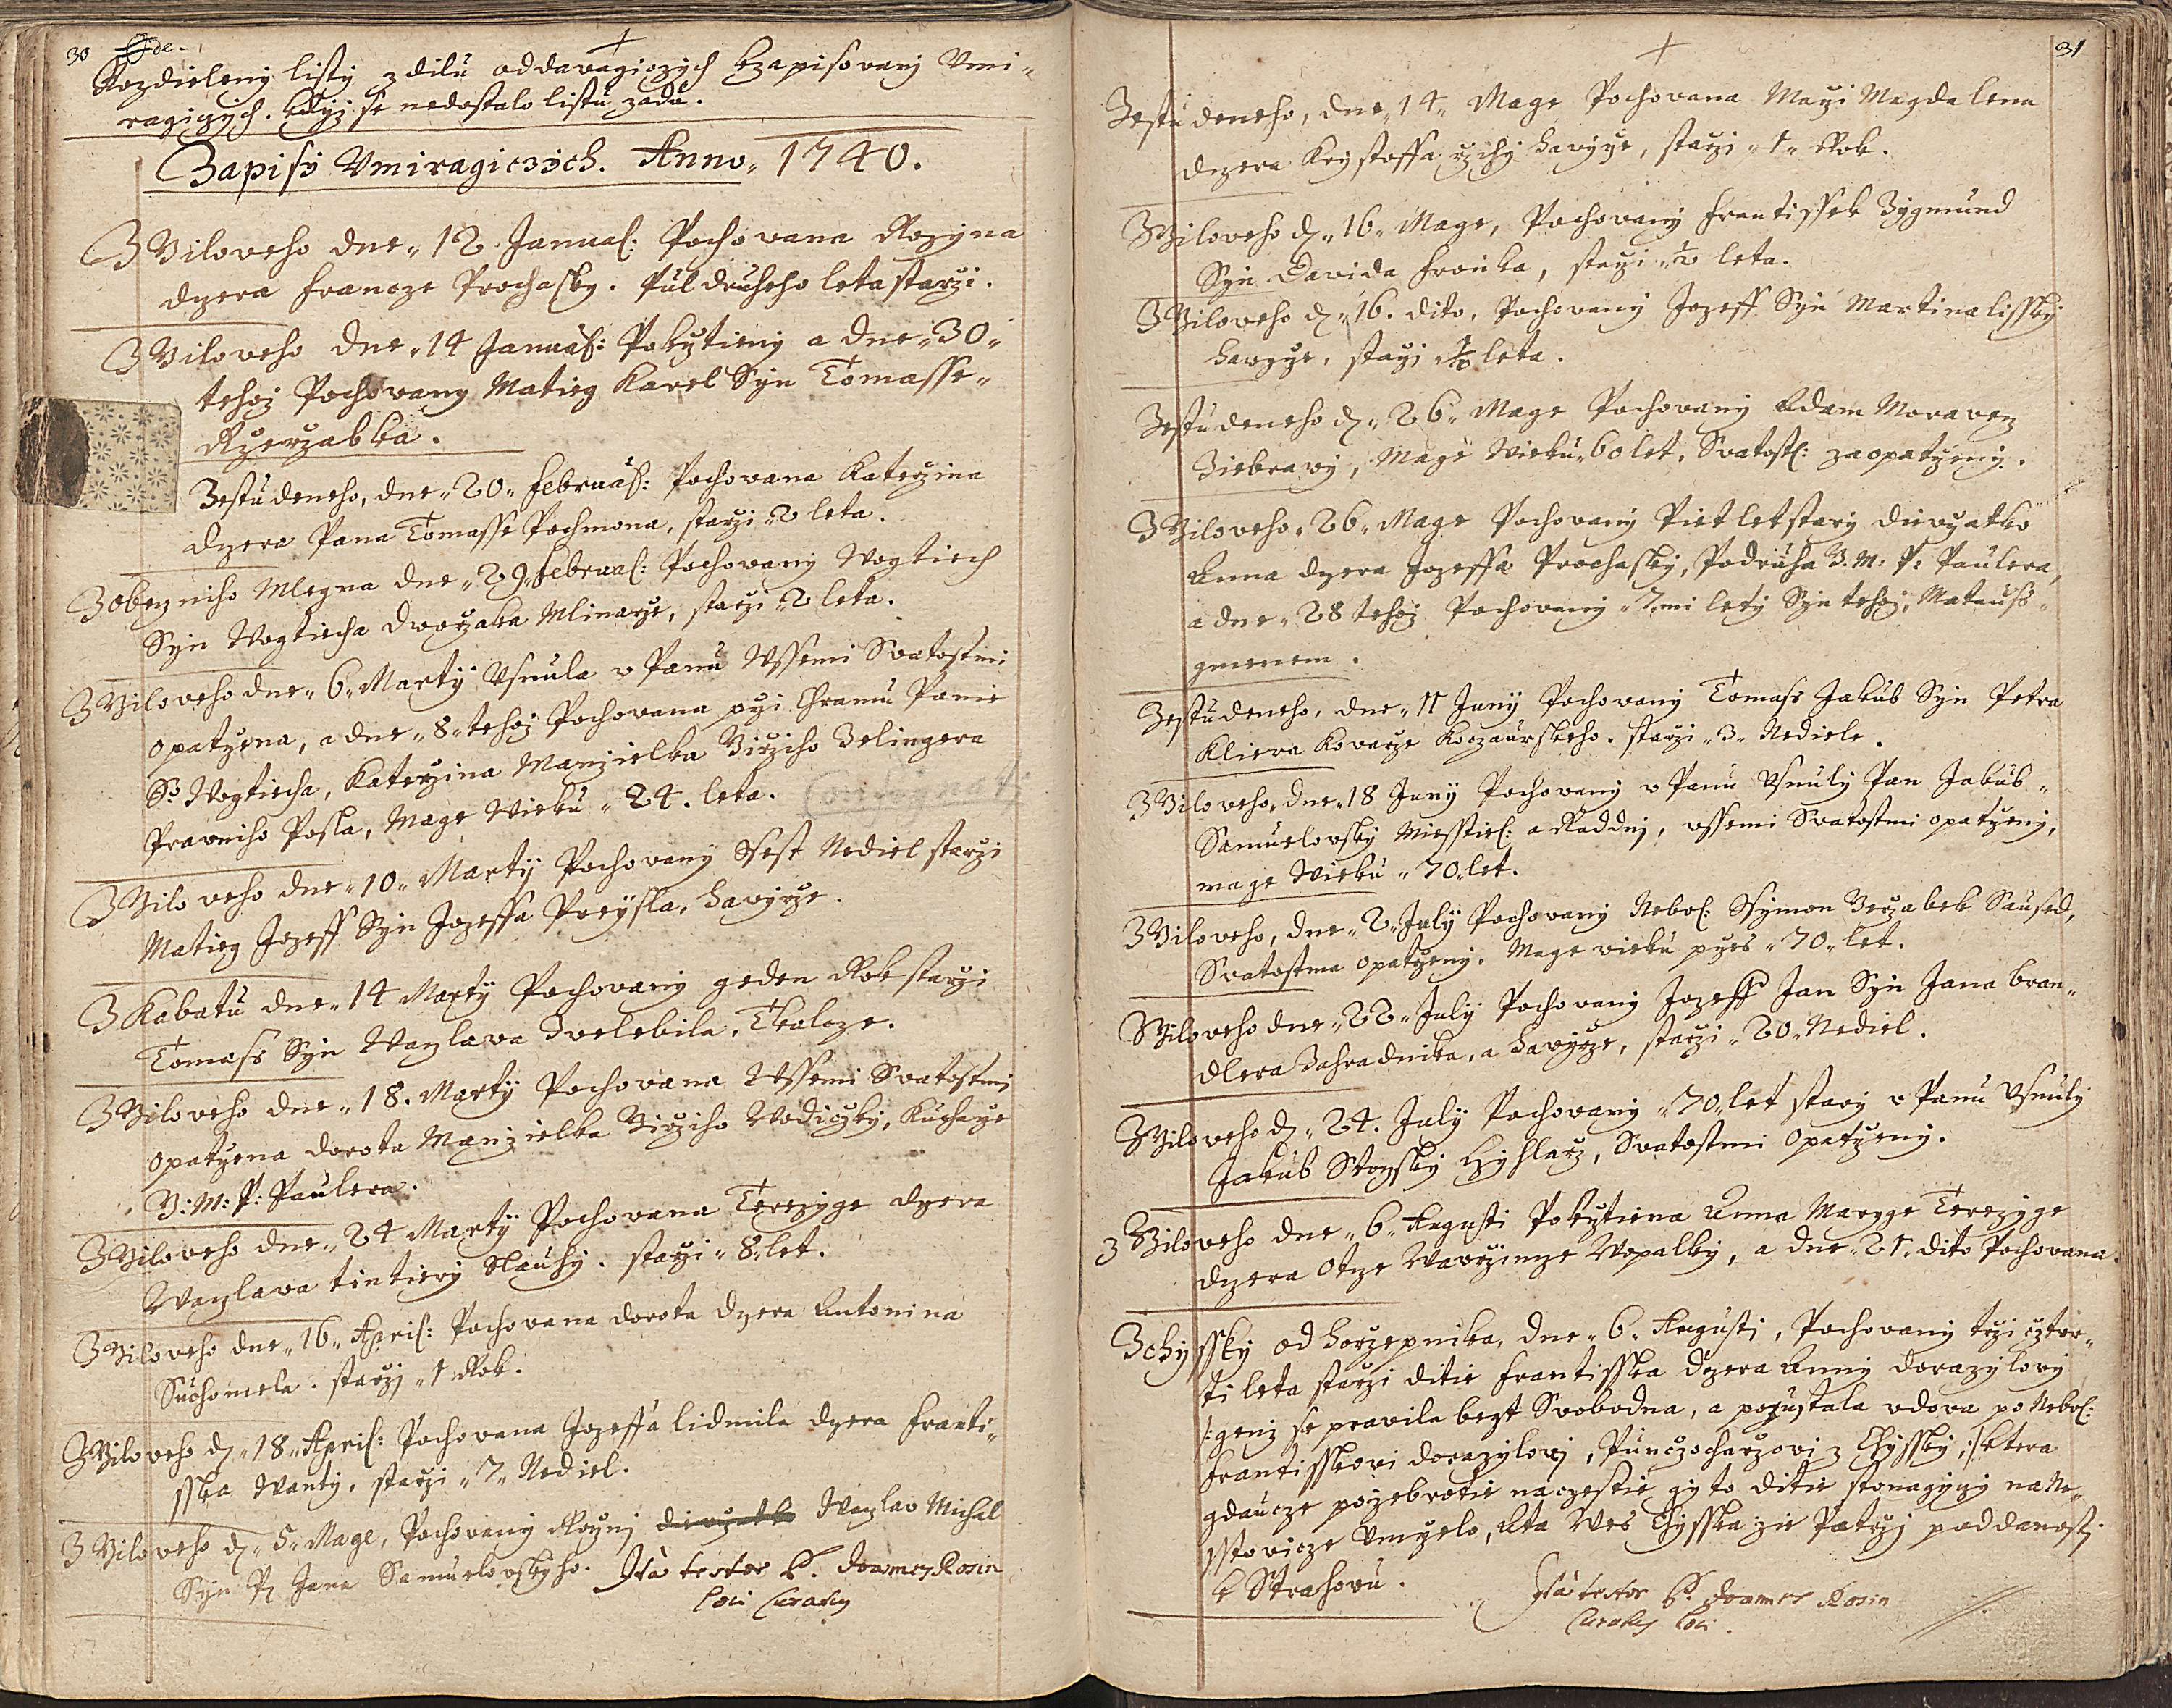 30
Rozdieleny listy z dilu oddavagiczych k zapisovany Vmi-
ragiczych. kdyz se nedostalo listu zadu.
Zapisy Vmiragiczich. Anno 1740.
Z Giloveho dne 12 Januar: Pochovana Rozyna
dczera Francze Prochasky. Pul druheho leta starzi.
Z Giloveho dne 14 Januar: Pokrztieny a dne 30
tehoz Pochovany Matieg Karel Syn Tomasse
Rzerzabka.
Ze studeneho, dne 20 Februar: Pochovana Katerzina
dczera Pana Tomasse Pochmona, starzi 2 leta.
Z obezniho Mlegna dne 29 Februar: Pochovany Wogtiech
Syn Wogtiecha dworzaka Mlinarze, starzi 2 leta.
Z Giloveho dne 6 Martij Vsnula v Panu Wssemi Svatostmi
opatrzena, a dne 8 tehoz Pochovana przi Chramu Panie
S: Wogtiecha, Katerzina Manzielka Girziho Belingera
Pravniho Posla, Mage Wieku 24. leta.
Z Giloveho dne 10 Martij Pochovany Ssest Nediel starzi
Matieg Jozeff Syn Jozeffa Preysla, havirze.
Z Kabatu dne 14 Martij Pochovany geden Rok starzi
Tomass Syn Waczlava Zvelebila, Tkalcze.
Z Giloveho dne 18. Martij Pochovana Wssemi Svatostmi
opatrzena dorota Manzielka Girziho Wodiczky, Kucharze
V: M: P: Paulera.
Z Giloveho dne 24 Martij Pochovana Terezyge dczera
Waczlava tintiery Slauhy. starzi 8 let.
Z Giloveho dne 16 April: Pochovana dorota dczera Antonina
Suchomela. starzj 1 Rok.
Z Giloveho d. 18 April: Pochovana Jozeffa lidmila dczera Franti-
sska Wanty, starzi 7 Nediel.
Z Giloveho d. 5 Mage, Pochovany Rocznj Waczlav Michal
Syn P. Jana Samuelovskyho. Ita testor P. Joannes Rosin
loci Curatus
31
Ze studeneho, dne 14 Mage Pochovana Marzi Magdalena
dczera Krystoffa havirze, starzi 1 Rok.
Z Giloveho d. 16 Mage, Pochovany Frantissek Zygmund
Syn Davida Fronka, starzi 1/2 leta.
Z Giloveho d. 16. dito, Pochovany Jozeff Syn Martina lissky
havirze, starzi 1/2 leta.
Ze studeneho d. 26 Mage Pochovany Adam Moravecz
Ziebravy, Mage Wieku 60 let, Svatost: zaopatrzeny.
Z Giloveho 26 Mage Pochovany Piet let stary diewczatko
Anna dczera Jozeffa Prochasky, Podruha V. M: P: Paulera,
a dne 28 tehoz Pochovany 7mi lety Syn tehoz, Matauss
gmenem.
Ze studeneho, dne 11 Juny Pochovany Tomass Jakub Syn Petra
Kliera Kovarze Koczaurskeho. starzi 3 Nediele.
Z Giloveho, dne 18 Juny Pochovany v Panu Vsnuly Pan Jakub
Samuelovsky Miesstie: a Raddny, wssemi Svatostmi opatrzeny,
mage Wieku 70 let.
Z Giloveho, dne 2 July Pochovany Nebo: Ssymon Berzabek Saused,
Svatostma opatrzeny. Mage vieku przes 70 let.
Z Giloveho dne 22 July Pochovany Jozeff Jan Syn Jana bran-
dlera Zahradnika, a havirze, starzi 20 Nediel.
Z Giloveho d. 24. July Pochovany 70 let stary v Panu Vsnuly
Jakub Stogsky Czihlarz, Svatostmi Opatrzeny.
Z Giloveho dne 6 Augusti Pokrztiena Anna Maryge Terezyge
dczera Otcze Wawrzincze Wopalky, a dne 21. dito Pochovana.
Z Chyssky od horzepnika, dne 6 Augustj, Pochovany trzi cztvr-
ti leta starzi ditie Frantisska dczera Anny dorazylovy
/: genz se pravila bezt Svobodna, a pozustala vdova po Nebo:
Frantisskovi dorazylovj, Punczocharzovi z Chyssky, :/ ktera
gdaucze po zebrotie na czestie gj to ditie stonagyczy na Ne-
stovicze Vmrzelo, Ata Wes Chysska zie Patrzj poddanostj
k Strahovu.
Ita testor P. Joannes Rosin
Curatus loci.